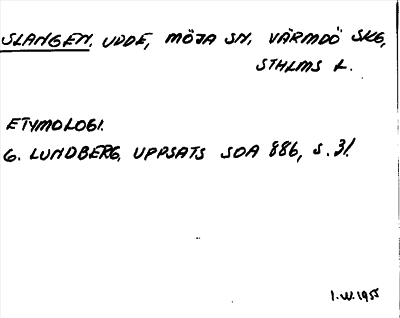 SLANGEN, UDDE, MÖJA SN, VÄRMDÖ SKG,
STHLMS L.
ETYMOLOGI.
G. LUNDBERG, UPPSATS SOA 886, s. 31.
I.W. 1955